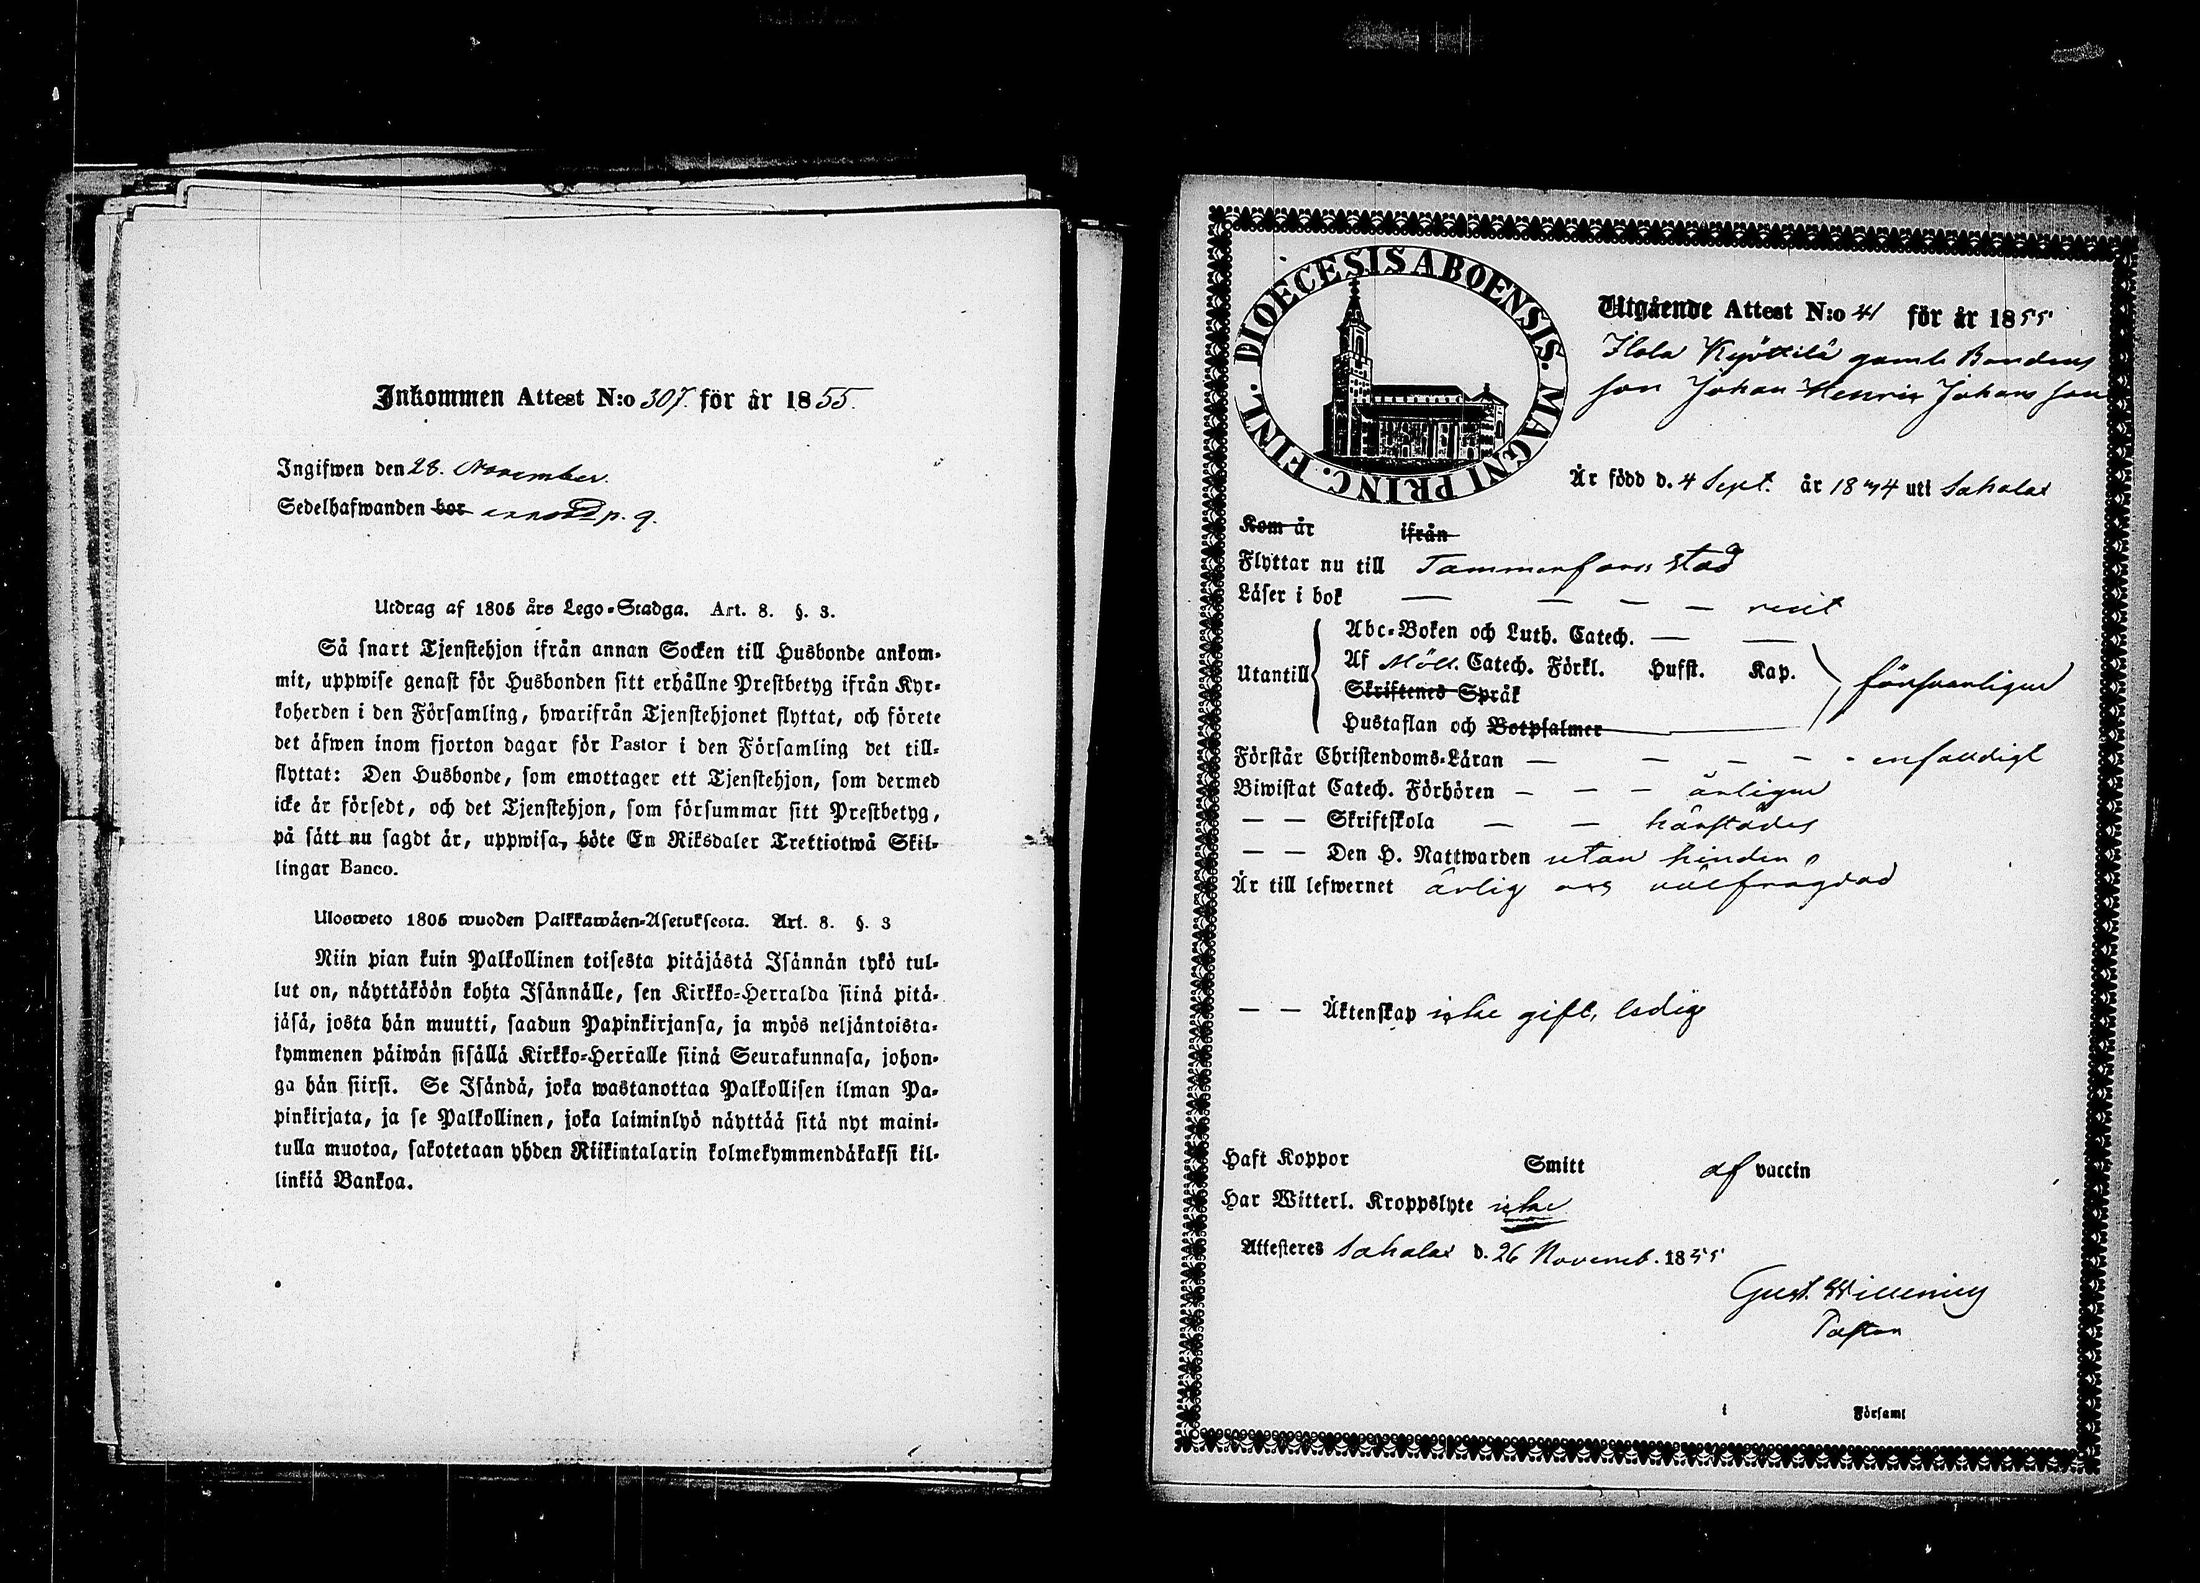 Inkommen Attest N:o 307. för år 1855.
Ingifwen den 28. November.
Sedelhafwanden bor p. 9.
Utdrag af 1805 års Lego-Stadga. Art. 8. §. 3.
Så snart Tjenstehjon ifrån annan Socken till Husbonde ankom-
mit, uppwise genast för Husbonden sitt erhållne Prestbetyg ifrån Kyr-
koherden i den Församling, hwarifrån Tjenstehjonet flyttat, och förete
det äfwen inom fjorton dagar för Pastor i den Församling det till-
flyttat: Den Husbonde, som emottager ett Tjenstehjon, som dermed
icke är försedt, och det Tjenstehjon, som försummar sitt Prestbetyg,
på sätt nu sagdt är, uppwisa, böte En Riksdaler Trettiotwå Skil-
lingar Banco.
Ulosweto 1805 wuoden Palkkawäen-Asetuksesta. Art. 8. §. 3
Niin pian kuin Palkollinen toisesta pitäjästä Isännän tykö tul-
lut on, näyttäköön kohta Isännälle, sen Kirkko-Herralda siinä pitä-
jäsä, josta hän muutti, saadun Papinkirjansa, ja myös neljäntoista-
kymmenen päiwän sisällä Kirkko-Herralle siinä Seurakunnasa, johon-
ga hän siirsi. Se Isändä, joka wastanottaa Palkollisen ilman Pa-
pinkirjata, ja se Palkollinen, joka laiminlyö näyttää sitä nyt maini-
tulla muotoa, sakotetaan yhden Riikintalarin kolmekymmendäkaksi kil-
linkiä Bankoa.
DIOECESIS ABOENSIS. MAGNI PRINC. FINL.
Utgående Attest N:o 41 för år 1855
Ilola Kyöttilä gamle Bondens
son Johan Henric Johansson
Är född d. 4 Sept. år 1834 uti Sahalax
Kom år ifrån
Flyttar nu till Tammerfors stad
Läser i bok — — — — rent
Utantill
Abc-Boken och Luth. Catech. — —
Af Möll. Catech. Förkl. Hufst. Kap.
Skriftenes Språk
Hustaflan och Botpsalmer
försvarligen
Förstår Christendoms-Läran — — — — enfaldigt
Biwistat Catech. Förhören — — — årligen
— — Skriftskola — — härstädes
— — Den H. Nattwarden utan hinder
Är till lefwernet ärlig och välfrägdad
— — Äktenskap icke gift, ledig
Haft Koppor Smitt af vaccin
Har Witterl. Kroppslyte icke
Attesteres Sahalax d. 26 Novemb. 1855
Gust. Willenius
Pastor
i Församl